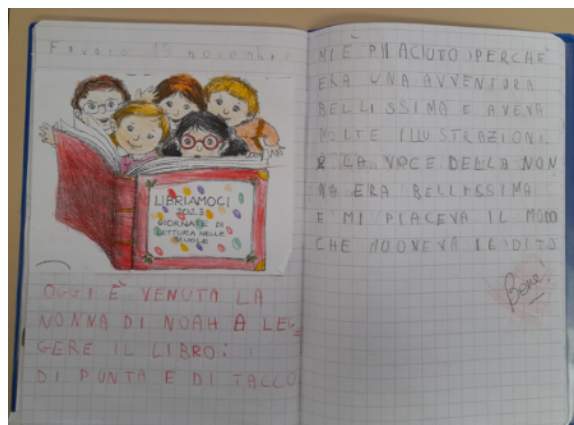 Favaro 15 novembre
LIBRIAMOCI
2023
GIORNATE DI
LETTURA NELLE
SCUOLE
OGGI È VENUTA LA
NONNA DI NOAH A LEG_
GERE IL LIBRO:
DI PUNTA E DI TACCO
MI È PIACIUTO PERCHÈ
ERA UNA AVVENTURA
BELLISSIMA E AVEVA
MOLTE ILLUSTRAZIONI.
E LA VOCE DELLA NON
NA ERA BELLISSIMA
E MI PIACEVA IL MODO
CHE MOOVEVA IL DITO
Bene!